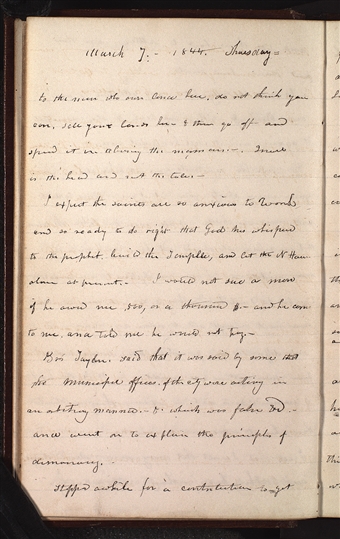 March 7. - 1844. Thursday =
to the men who own land here, do not think you
can sell your lands here & then go off and
spend it in abusing the mormons. -
is the head and not the tail. -
I expect the saints are so anxious to work
and so ready to do right that God has whispered
to the prophet build the Temple, and let the N Hau
alone at present. - I would not sue a man
if he owed me 500, or a thousand $ - and he come
to me and told me he would not pay. -
Bro Taylor. said that it was said by some that
the municipal officers of the city were acting in
an arbitrary manner. - &. which was false &c -
and went on to explain the principles of
democracy. -
stopped awhile for a contribution to get